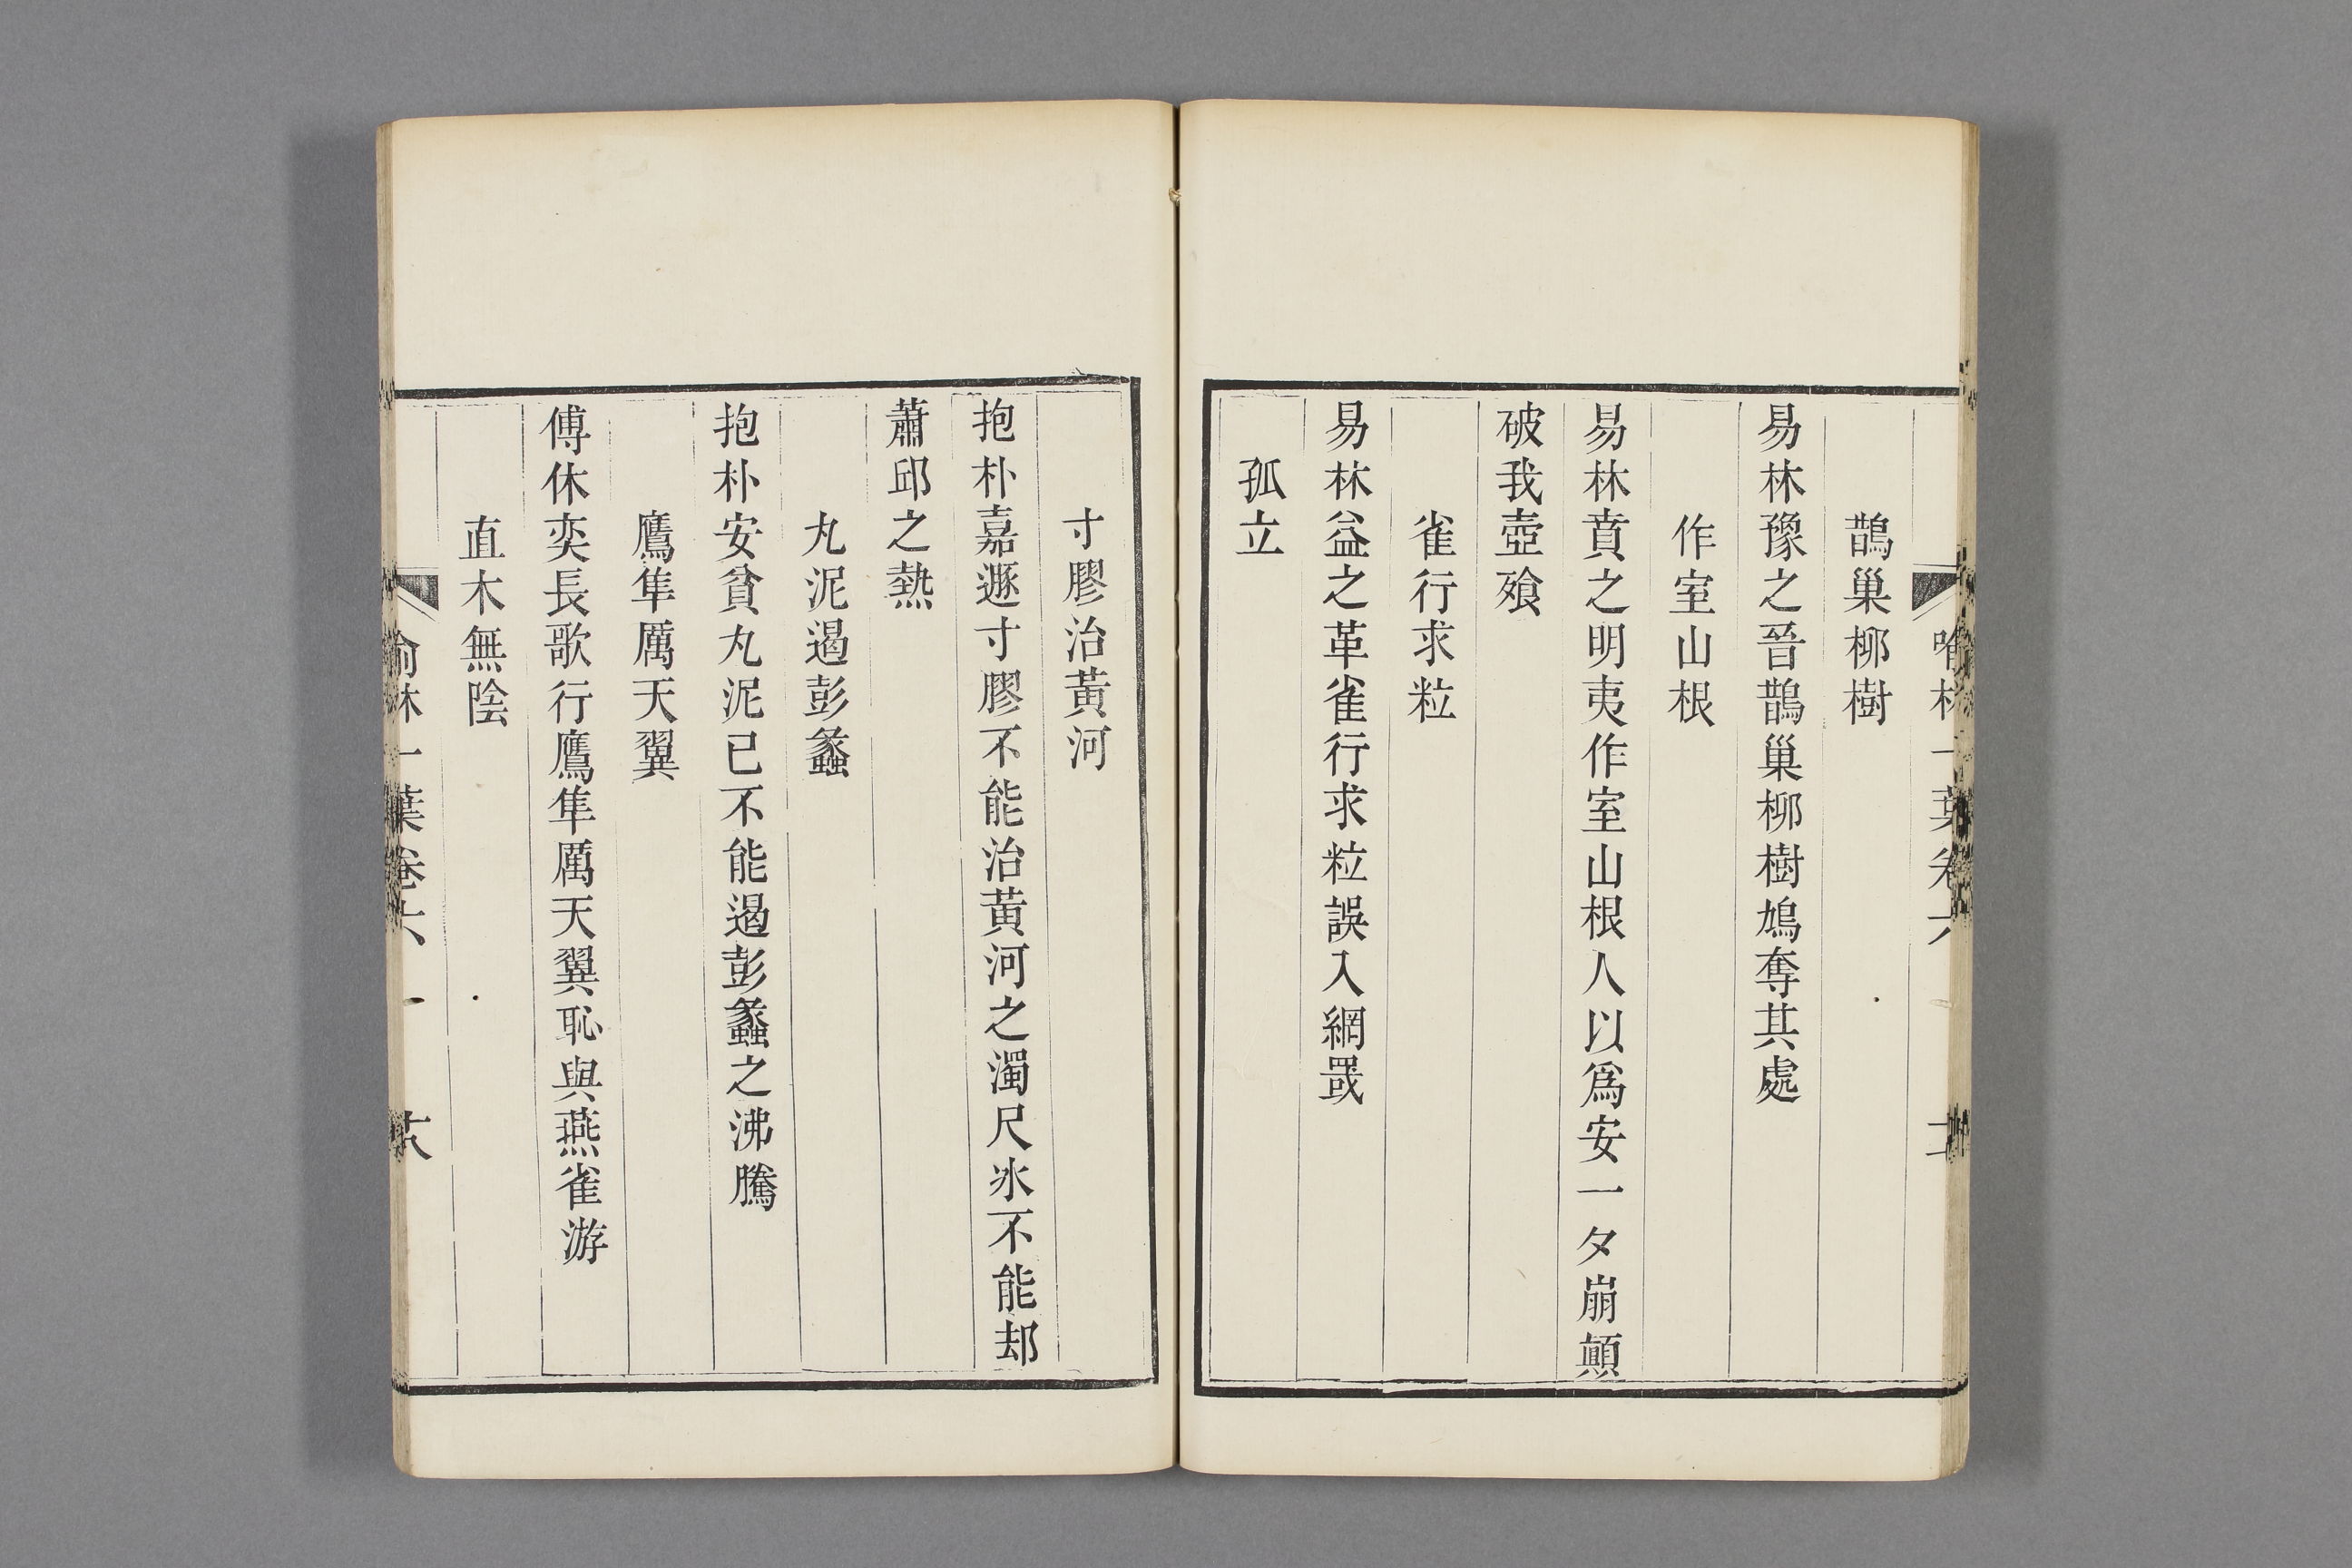 鵲巢柳樹
易林豫之晉鵲巢柳樹鳩奪其處
作室山根
易林賁之明夷作室山根人以爲安一夕崩顛
破我壺飧
雀行求粒
易林益之革雀行求粒誤入網罭
孤立
寸膠治黃河
抱朴嘉遯寸膠不能治黃河之濁尺氷不能却
蕭邱之熱
丸泥遏彭蠡
抱朴安貧丸泥已不能遏彭蠡之沸騰
鷹隼厲天翼
傅休奕長歌行鷹隼厲天翼恥與燕雀游
直木無陰
喻林一葉卷六